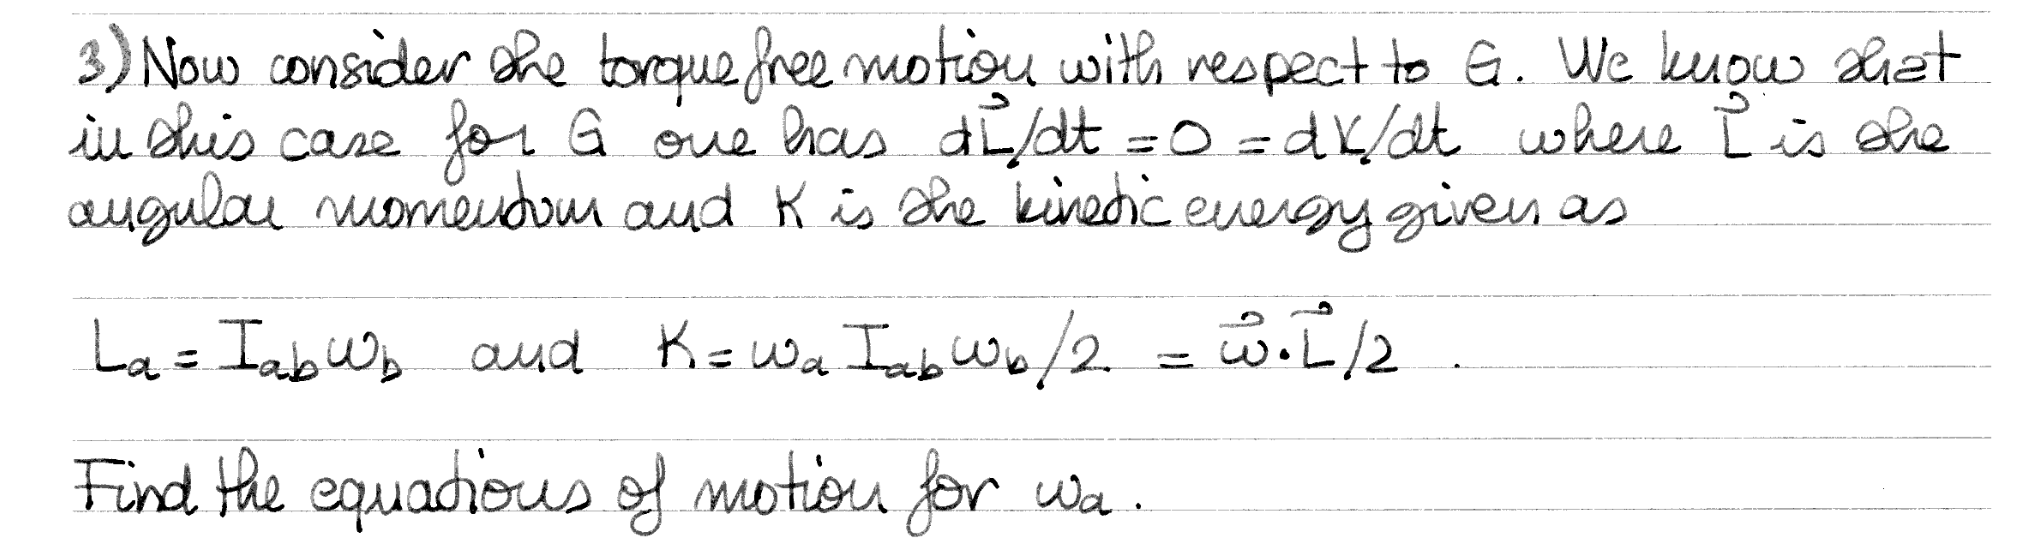 3) Now consider the torque free motion with respect to G. We know that
in this case for G one has dL⃗/dt = 0 = dK/dt where L⃗ is the
angular momentum and K is the kinetic energy given as
Lₐ = I_ab ω_b and K = ωₐ I_ab ω_b /2 = ω⃗ · L⃗ /2 .
Find the equations of motion for ωₐ .